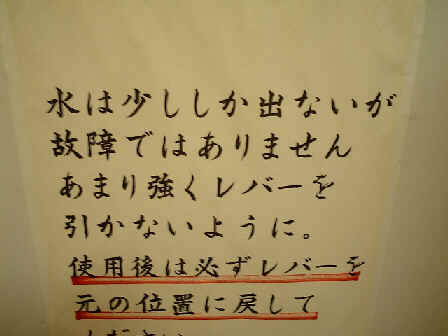 水は少ししか出ないが
故障ではありません
あまり強くレバーを
引かないように。
使用後は必ずレバーを
元の位置に戻して